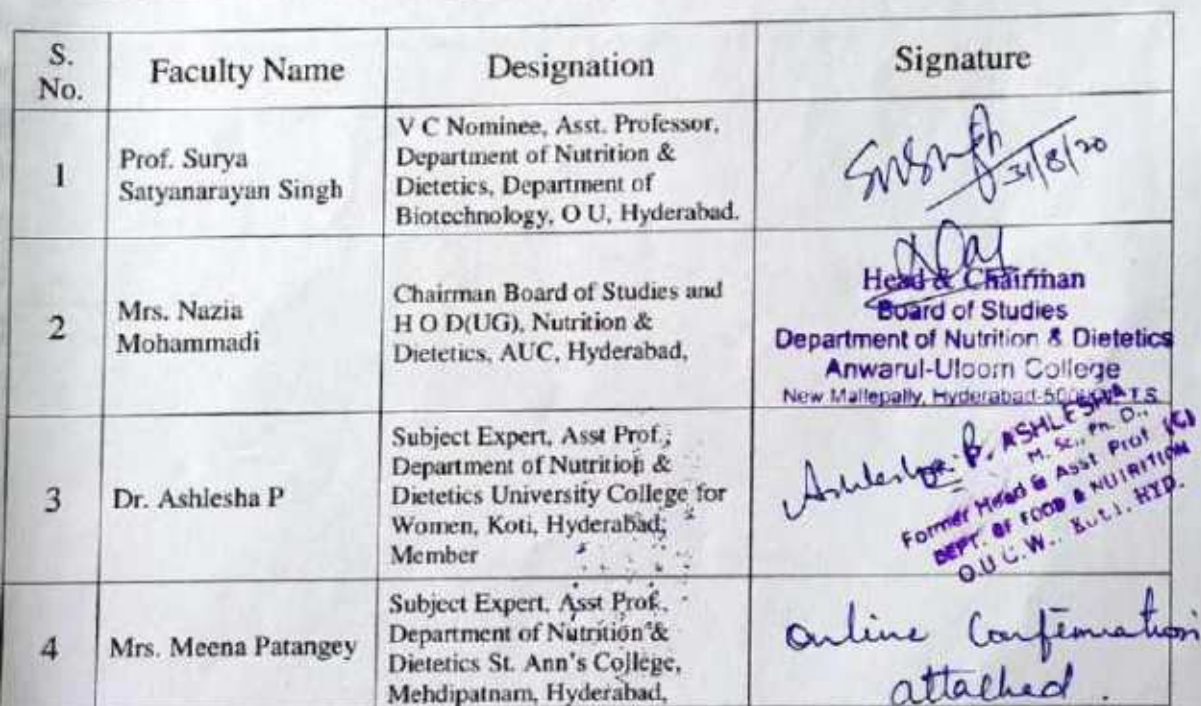 S.
No.
Faculty Name
Designation
Signature
1
Prof. Surya
Satyanarayan Singh
V C Nominee, Asst. Professor,
Department of Nutrition &
Dietetics, Department of
Biotechnology, O U, Hyderabad.
31/8/20
2
Mrs. Nazia
Mohammadi
Chairman Board of Studies and
H O D(UG), Nutrition &
Dietetics, AUC, Hyderabad,
Head & Chairman
Board of Studies
Department of Nutrition & Dietetics
Anwarul-Uloom College
New Mallepally, Hyderabad T.S
3
Dr. Ashlesha P
Subject Expert, Asst Prof.,
Department of Nutrition &
Dietetics University College for
Women, Koti, Hyderabad,
Member
Ashlesha
P. ASHLESHA
M. Sc., Ph. D.,
Former Head & Asst Prof (C)
DEPT. OF FOOD & NUTRITION
O.U.C.W., Koti, HYD.
4
Mrs. Meena Patangey
Subject Expert, Asst Prof.
Department of Nutrition &
Dietetics St. Ann's College,
Mehdipatnam, Hyderabad,
Online Confirmation
attached.